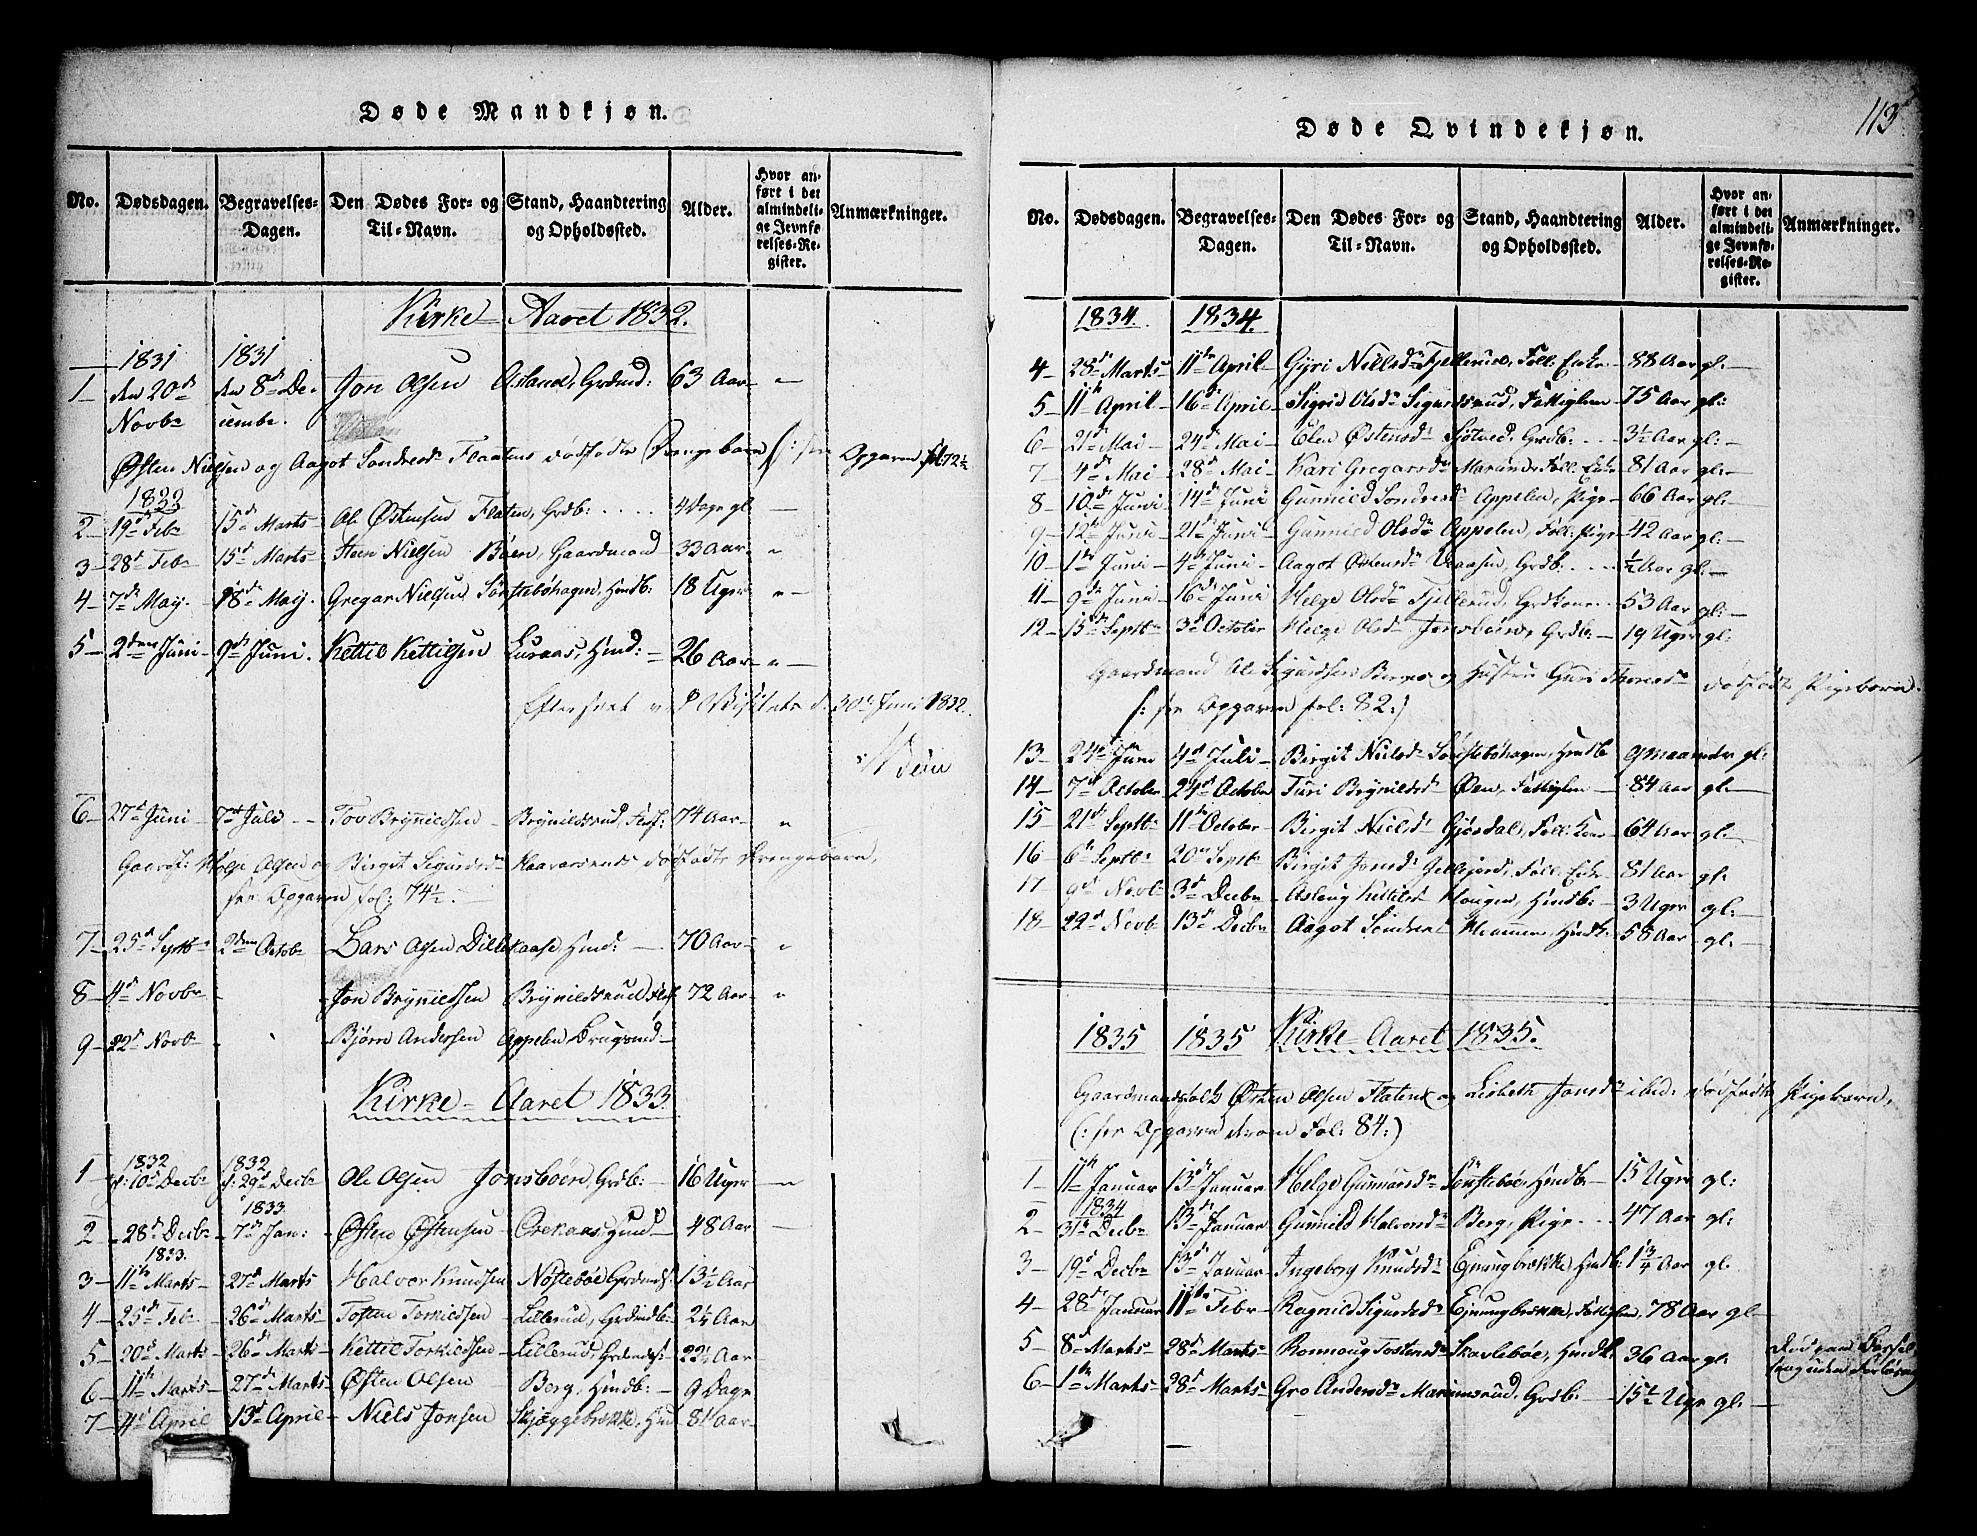 Døde Mandkjøn.
No. Dødsdagen. Begravelses-Dagen. Den Dødes For- og Til-Navn. Stand, Haandtering og Opholdssted. Alder. Hvor anført i det almindelige Jevnførelses-Register. Anmærkninger.
Kirke-Aaret 1832.
1831 1831
1 den 20d Novbr den 8d December. Jon Olsen Asland, Grdmd: 63 Aar
Østen Nielsen og Aagot Sondresd Flaatens dødfødte Drengebarn (: see Opgaven fol 72½
1832
2 19d Febr 15d Marts Ole Østensen Flaten, Grdb: 4 Dage gl
3 28d Febr 15d Marts Steen Nielsen Bøen, Gaardmand 33 Aar
4 7d Maij 18d Maij Gregar Nielsen Sønstebøhagen, Hmdb: 18 Uger
5 2den Juni 9d Juni Kettil Kettilsen Luraas, Hmd: 26 Aar
Efterseet ved Visitats d. 30te Juni 1832.
6 27d Juni 7d Juli Tov Brynildsen Brynildsrud, 74 Aar
Helge Olsen og Birgit Sigurdsd dødfødte Drengebarn,
see Opgaven fol: 74½.
7 25d Septbr 2den Octobr Lars Olsen Dillekaase, Hmd: 70 Aar
8 4d Novbr Jon Brynildsen Brynildsrud 72 Aar
9 22d Novb Bjørn Andersen Appelen Brugsmd
Kirke-Aaret 1833.
1832 1832
1 10d Decbr 29d Decbr Ole Olsen Jonsbøen, Grdb: 16 Uger
1833
2 28d Decbr 7d Jan: Østen Østensen Orekaas, Hmd 48 Aar
1833.
3 11te Marts 27d Marts Halvor Knudsen Nøstebøe 13½ Aar
4 25d Feb 26d Marts Tosten Torkildsen Lillerud, Grdmdb: 2¼ Aar
5 20d Marts 26d Marts Kettil Torkildsen Lillerud, 22½ Aar
6 11te Marts 27d Marts Østen Olsen Berg, Hmdb: 9 Dage
7 4d April 13d April Niels Jonsen Skjæggebrække, Hmd 81 Aar
113
Døde Qvindekjøn.
No. Dødsdagen. Begravelses-Dagen. Den Dødes For- og Til-Navn. Stand, Haandtering og Opholdssted. Alder. Hvor anført i det almindelige Jevnførelses-Register. Anmærkninger.
1834. 1834.
4 28d Marts 11te April Gyri Nielsd Fjellerud, Foll: Enke 88 Aar gl:
5 11te April 16d April Sigrid Olsd Sigurdsrud, Fattiglem 75 Aar gl:
6 21d Mai 24d Mai Elen Østensd Sjøtved, Grdb: 3½ Aar gl:
7 4d Mai 28d Mai Kari Gregarsd Marumd, Foll: Enke 81 Aar gl:
8 10d Juni 14d Juni Gunnild Sondresd Appelen, Pige 66 Aar gl:
9 12te Juni 21d Juni Gunnild Olsd Appelen, Foll: Pige 42 Aar gl:
10 1te Juni 4d Juni Aagot Østensd Vraasen, Grdb: ½ Aar gl:
11 9de Juni 16d Juni Helge Olsd Fjellerud, Grdkone 53 Aar gl:
12 15d Septbr 3d October Helge Olsd Jonsbøens, Grdb: 19 Uger gl:
Gaardmand Ole Sigurdsen Berges og Hustru Guri Thomesd dødfødte Pigebarn.
(: see Opgaven fol: 82:)
13 24d Juni 4d Juli Birgit Nielsd Sønstebøhagen, Hmdb 9 Maaneder gl:
14 7d Octobr 24d Octobr Turi Brynildsd Øen, Fattiglem 84 Aar gl:
15 21d Septbr 11te October Birgit Nielsd Gjøsdal, Foll: Kone 64 Aar gl:
16 6d Septbr 20d Septbr Birgit Jonsd Foll: Enke 81 Aar gl:
17 9d Novb 3d Decbr Aslaug Kittilsd Haugen, Hmdb: 3 Uger gl:
18 22d Novb 13d Decbr Aagot Sondresd 58 Aar gl:
1835 1835 Kirke-Aaret 1835.
Gaardmandsfolk Østen Olsen Flatens og Lisbeth Jonsd ibid: dødfødte Pigebarn,
(: see Opgaven derom Fol: 84:)
1 11te Januar 13d Januar Helge Gunnarsd Sønstebøe, Hmdb 15 Uger gl:
1834
2 31te Decbr 13d Januar Gunnild Halvorsd Berg, Pige 47 Aar gl:
3 19d Decbr 13d Januar Ingeborg Knudsd Ejungbrække, Hmdb: 1¾ Aar gl:
4 28d Januar 11te Febr Ragnild Sigurdsd Ejungbrække, Fattiglem, 78 Aar gl
5 8d Marts 28d Marts Ronnoug Tostensd Skarlebøe, Hmdk: 36 Aar gl: Død paa Barselseng uden Forløsning
6 1te Marts 28d Marts Gro Andersd Marumsrud, Grdb: 15½ Uge gl: